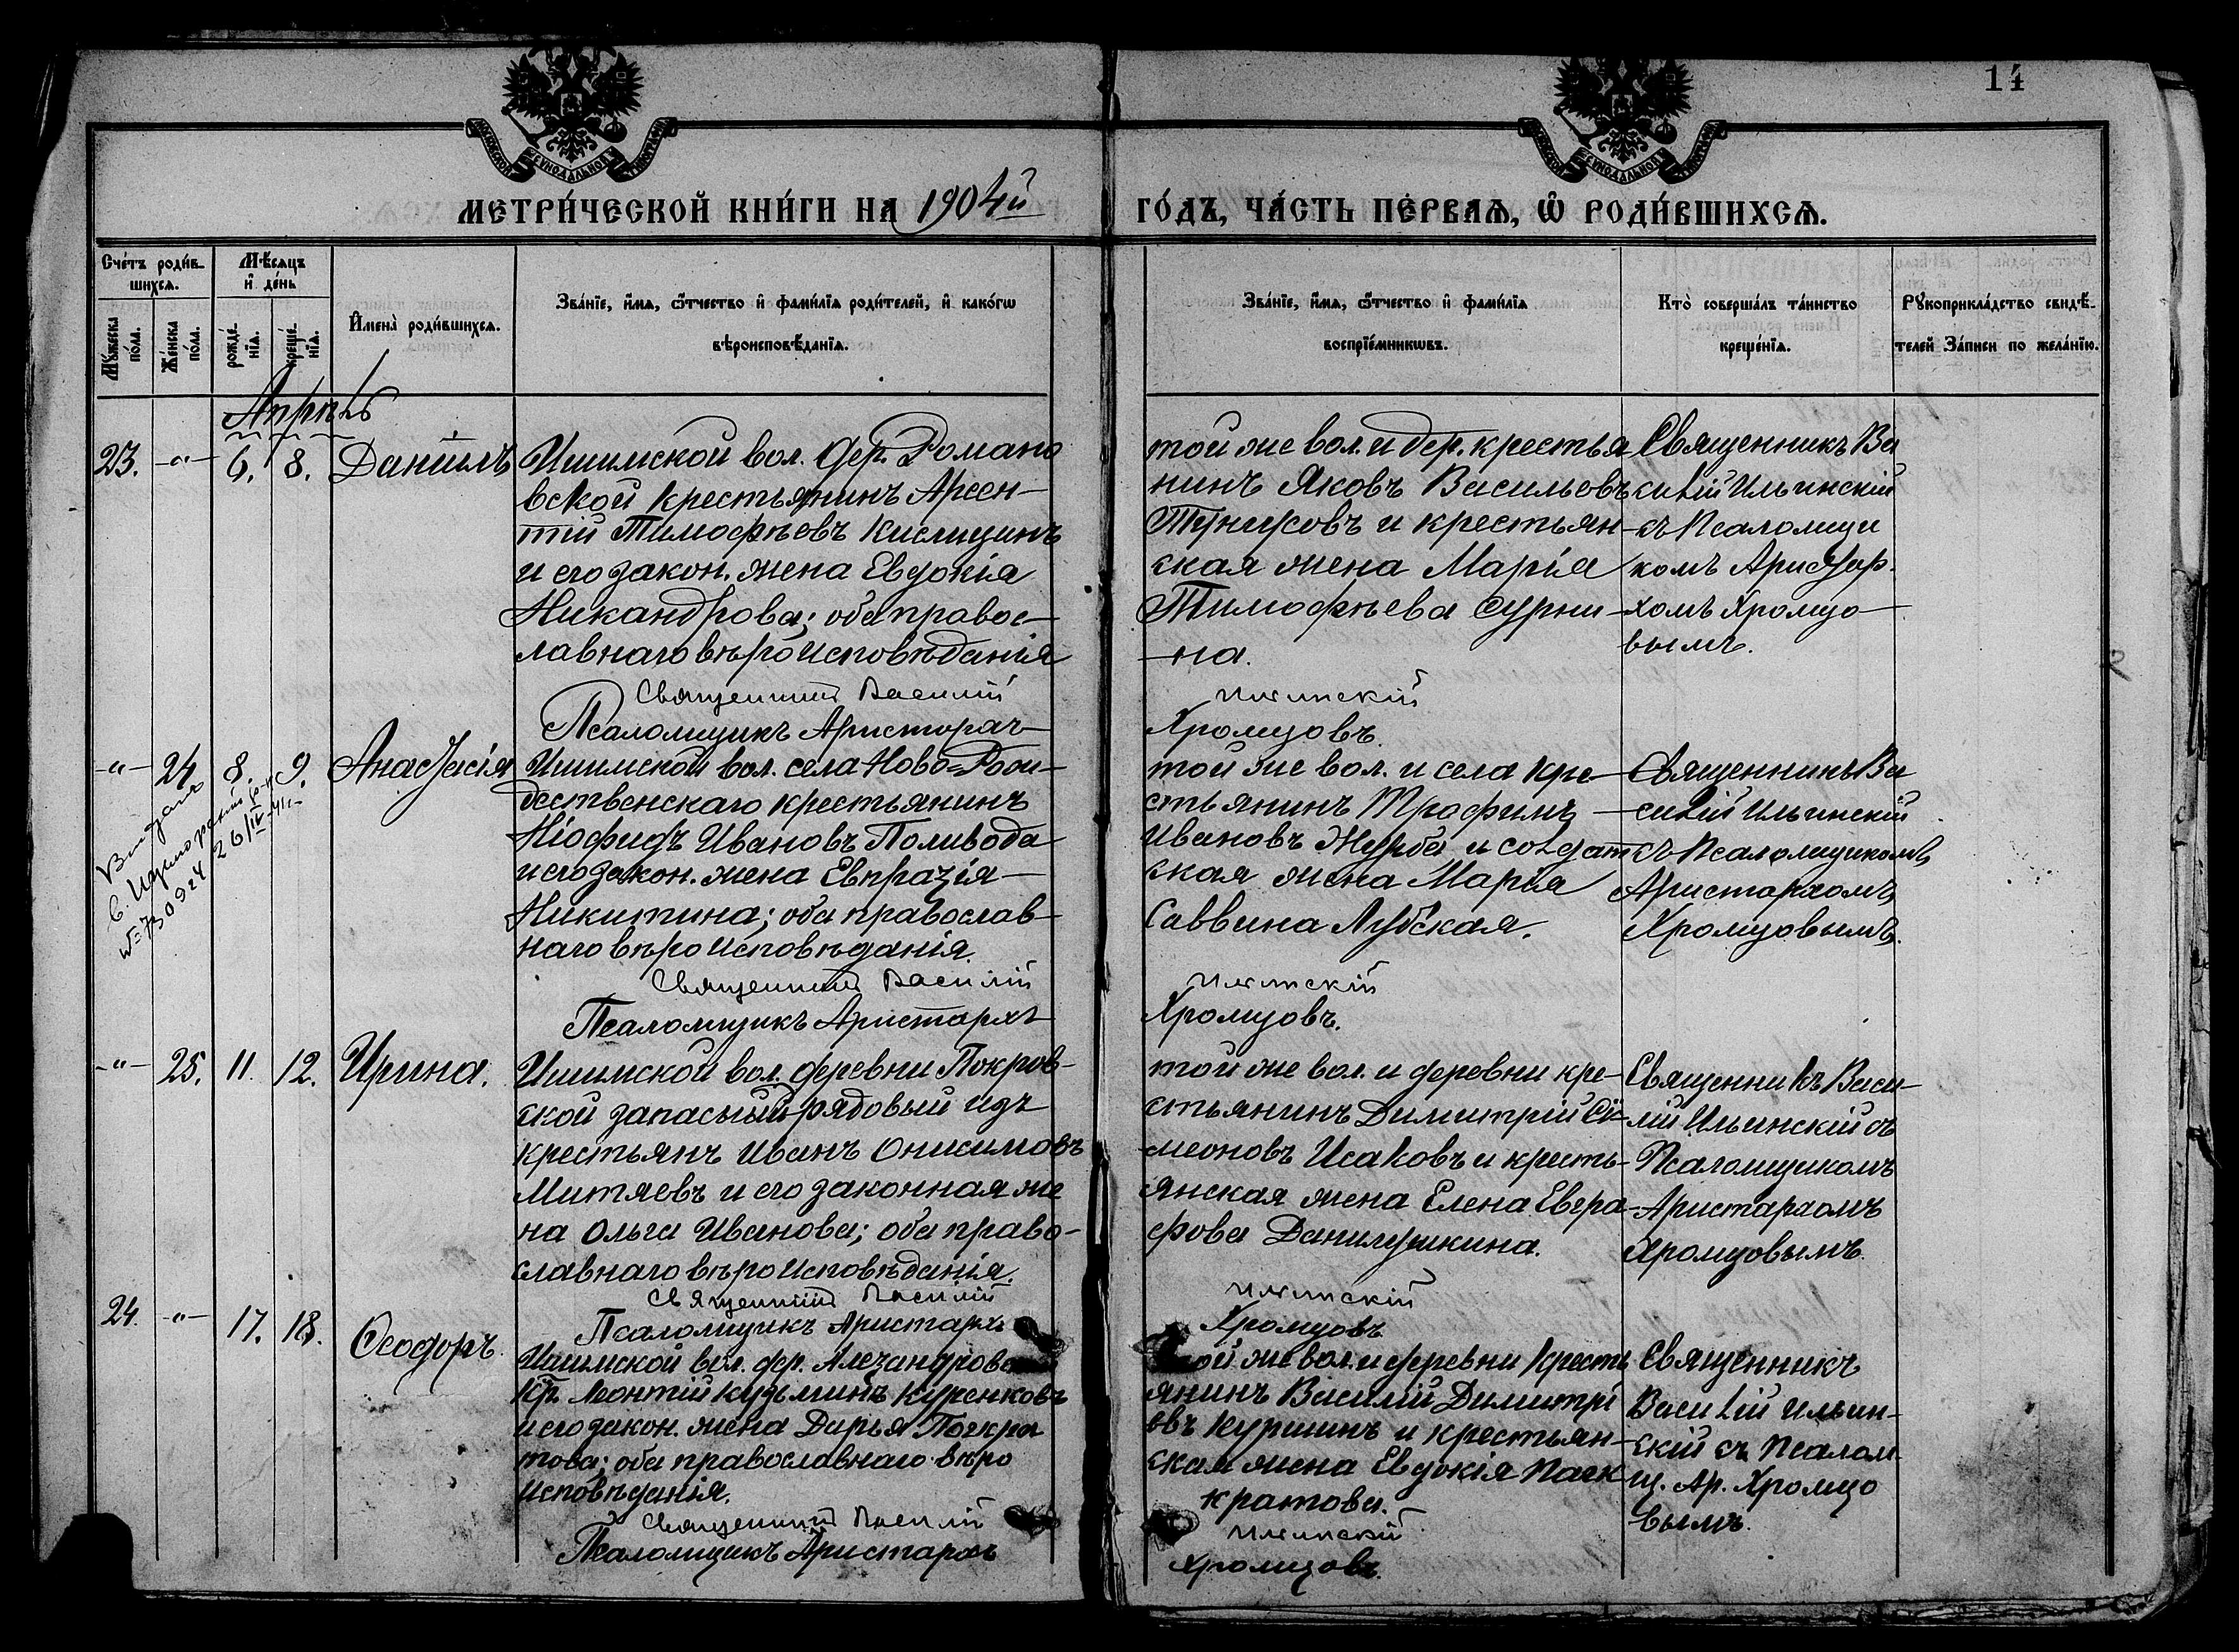 14
МЕТРИ́ЧЕСКОЙ КНИ́ГИ НА 1904й
ГО́ДЪ, ЧА́СТЬ ПЕ́РВАЯ, Ѿ РОДИ́ВШИХСЯ.
Сче́тъ роди́в-
шихся.
Мѣ́сяцъ
и де́нь
Му́жеска
по́ла.
Же́нска
по́ла.
рожде́-
нія.
креще́-
нія.
Имена̀ роди́вшихся.
Зва́ніе, и́мя, ѻ́тчество и фами́лія роди́телей, и како́гѡ
вѣроисповѣ́данія.
Зва́ніе, и́мя, ѻ́тчество и фами́лія
воспріе́мникѡвъ.
Кто̀ соверша́лъ та́инство
креще́нія.
Рꙋкоприкла́дство свидѣ́-
телей за́писи по жела́нію.
Апрѣль
23. -"- 6. 8. Даниілъ
Ишимской вол. дер. Романо
вской крестьянинъ Арсен-
тій Тимофѣевъ Кислицинъ
и его закон. жена Евдокія
Никандрова; оба правос-
лавнаго вѣроисповѣданія
Священникъ Василій
Псаломщикъ Аристархъ
той же вол. и дер. крестья
нинъ Яковъ Васильевъ
и крестьян-
ская жена Марія
Тимофѣева Сурни-
на.
Ильинскій
Хромцовъ.
Священникъ Ва
силій Ильинскій
съ Псаломщи
комъ Аристар-
хомъ Хромцо-
вымъ.
-"- 24. 8. 9. Анастасія
Выдано
№ 730924 26/IV-41г.
Ишимской вол. села Ново-Рож-
дественскаго крестьянинъ
Ивановъ Поливода
и его закон. жена Евпраxія
Никитина; оба православ-
наго вѣроисповѣданія.
Священникъ Василій
Псаломщикъ Аристархъ
той же вол. и села кре-
стьянинъ Трофимъ
Ивановъ Журба и солдат-
ская жена Марія
Саввина Лубская.
Ильинскій
Хромцовъ.
Священникъ Ва
силій Ильинскій
съ Псаломщикомъ
Аристархомъ
Хромцовымъ.
-"- 25. 11. 12. Ирина.
Ишимской вол. деревни Покров-
ской запасный рядовый изъ
крестьянъ Иванъ Онисимовъ
Митяевъ и его законная же
на Ольга Иванова; оба право-
славнаго вѣроисповѣданія.
Священникъ Василій
Псаломщикъ Аристархъ
той же вол. и деревни кре-
стьянинъ Димитрій Си-
меоновъ Исаковъ и кресть-
янская жена Елена Евгра-
фова Данилушкина.
Ильинскій
Хромцовъ
Священникъ Васи-
лій Ильинскій съ
Псаломщикомъ
Аристархомъ
Хромцовымъ.
24. -"- 17. 18. Ѳеодоръ.
Ишимской вол. дер.
кр. Леонтій Кузьминъ Куренковъ
и его закон. жена Дарья Панкра
това; оба православнаго вѣро
исповѣданія.
Священникъ Василій
Псаломщикъ Аристархъ
той же вол. и деревни кресть
янинъ Василій Димитрі
евъ Куришинъ и крестьян-
ская жена Евдокія
кратова.
Ильинскій
Хромцовъ.
Священникъ
Василій Ильин-
скій съ Псалом-
щ. Ар. Хромцо
вымъ.